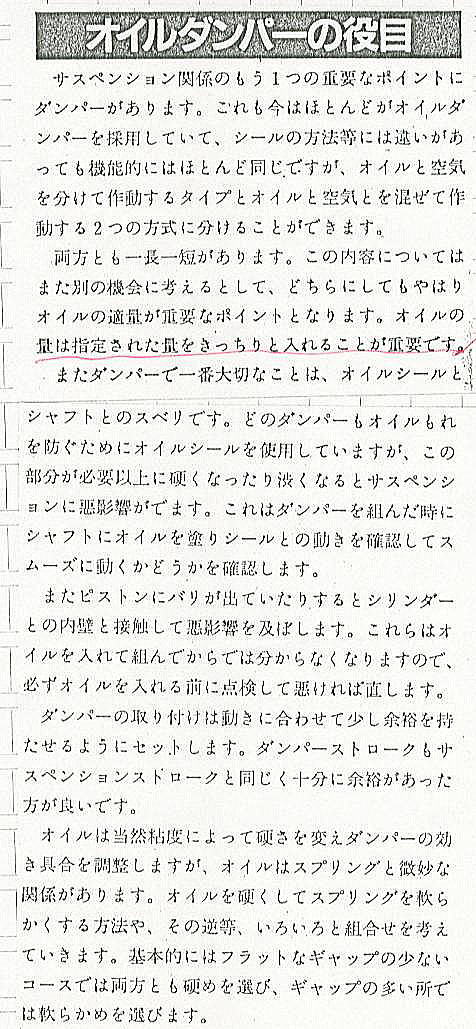 オイルダンパーの役目
サスペンション関係のもう1つの重要なポイントに
ダンパーがあります。これも今はほとんどがオイルダ
ンパーを採用していて、シールの方法等には違いがあ
っても機能的にはほとんど同じですが、オイルと空気
を分けて作動するタイプとオイルと空気とを混ぜて作
動する2つの方式に分けることができます。
両方とも一長一短があります。この内容については
また別の機会に考えるとして、どちらにしてもやはり
オイルの適量が重要なポイントとなります。オイルの
量は指定された量をきっちりと入れることが重要です。
またダンパーで一番大切なことは、オイルシールと
シャフトとのスベリです。どのダンパーもオイルもれ
を防ぐためにオイルシールを使用していますが、この
部分が必要以上に硬くなったり渋くなるとサスペンシ
ョンに悪影響がでます。これはダンパーを組んだ時に
シャフトにオイルを塗りシールとの動きを確認してス
ムーズに動くかどうかを確認します。
またピストンにバリが出ていたりするとシリンダー
との内壁と接触して悪影響を及ぼします。これらはオ
イルを入れて組んでからでは分からなくなりますので、
必ずオイルを入れる前に点検して悪ければ直します。
ダンパーの取り付けは動きに合わせて少し余裕を持
たせるようにセットします。ダンパーストロークもサ
スペンションストロークと同じく十分に余裕があった
方が良いです。
オイルは当然粘度によって硬さを変えダンパーの効
き具合を調整しますが、オイルはスプリングと微妙な
関係があります。オイルを硬くしてスプリングを軟ら
かくする方法や、その逆等、いろいろと組合せを考え
ていきます。基本的にはフラットなギャップの少ない
コースでは両方とも硬めを選び、ギャップの多い所で
は軟らかめを選びます。